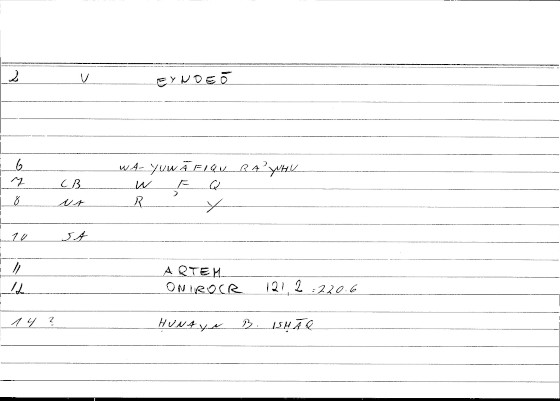 2 V EYNDEŌ
6 WA-YUWĀFIQU RAʾYNHU
7 CB W F Q
8 NA R ʾ Y
10 SA
11 ARTEM
12 ONIROCR 121,2 :220.6
14 ? ḤUNAYN B. ISḤĀQ